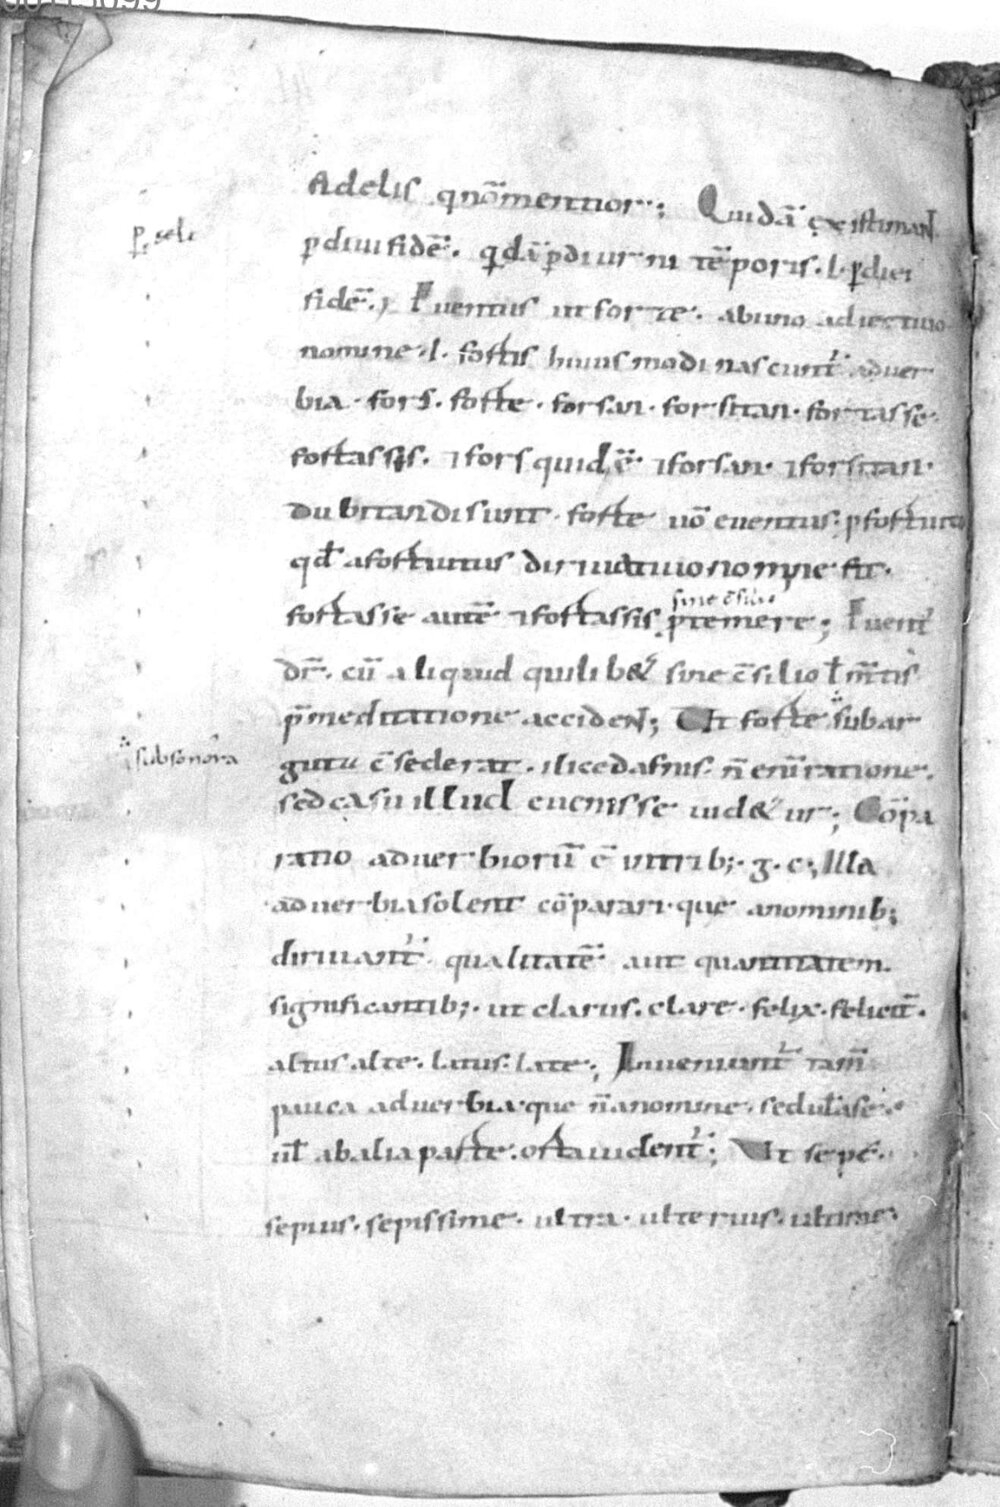 Adelis qnō mentior; Quidā existimant
p̱ seli
p̱ diui fidē. qd̄ā p̱ diurni tēporis. l. p̱ diei
fidē. Euentus ut forte. ab uno adiectiuo
nomine. l. fortis huius modi nascunt̄ aduer
bia. fors. forte. forsan. forsitan. fortasse.
fortassis. ⁊ fors quidē. ⁊ forsan. ⁊ forsitan.
dubitandi sunt. forte uō euentus. p fortuitu
qd̄ a fortuitus diriuatiuo nomine fit.
sine c̄silio
fortasse autē ⁊ fortassis. p temere; Euent̄
dr̄. cū aliquid quilib& sine c̄silio l̄ m̄tis
p̄meditatione accident; Ut forte subar
subsonora
guta c̄sederat. ilice dafnis. n̄ enī ratione.
sed casu illud euenisse uid&ur; Cōpa
ratio aduerbiorū ē in trib;. g. c; Illa
aduerbia solent cōparari. que a nominib;
diriuant̄. qualitatē aut quantitatem.
significantib;. ut clarus. clare. felix. felicit̄.
altus alte. latus. late; Inueniunt̄ tam̄
pauca aduerbia. que n̄ a nomine. sed ul̄ a se.
ul̄ ab alia parte. orta uident̄; Ut sepe.
sepius. sepissime. ultra. ulterius. ultime.